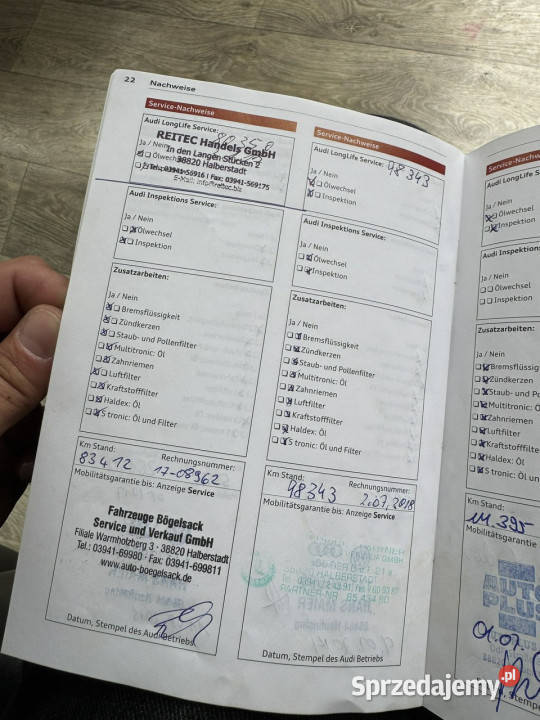 22
Nachweise
Service-Nachweise
Audi LongLife Service:
REITEC Handels GmbH
In den Langen Stücken 2
38820 Halberstadt
Telefon: 03941-56916 I Fax: 03941-569175
E-Mail: info@reitec.biz
Ja / Nein
Ölwechsel
Audi Inspektions Service:
Ja / Nein
Ölwechsel
Inspektion
Zusatzarbeiten:
Ja / Nein
Bremsflüssigkeit
Zündkerzen
Staub- und Pollenfilter
Multitronic: Öl
Zahnriemen
Luftfilter
Kraftstofffilter
Haldex: Öl
S tronic: Öl und Filter
Km Stand:
Rechnungsnummer:
83412
17-08962
Mobilitätsgarantie bis: Anzeige Service
Fahrzeuge Bögelsack
Service und Verkauf GmbH
Filiale Warmholzberg 3 · 38820 Halberstadt
Tel.: 03941-69980 · Fax: 03941-699811
www.auto-boegelsack.de
Datum, Stempel des Audi Betriebs
Service-Nachweise
Audi LongLife Service:
98343
Ja / Nein
Ölwechsel
Inspektion
Audi Inspektions Service:
Ja / Nein
Ölwechsel
Inspektion
Zusatzarbeiten:
Ja / Nein
Bremsflüssigkeit
Zündkerzen
Staub- und Pollenfilter
Multitronic: Öl
Zahnriemen
Luftfilter
Kraftstofffilter
Haldex: Öl
S tronic: Öl und Filter
Km Stand:
Rechnungsnummer:
98343
2.07.2018
Mobilitätsgarantie bis: Anzeige Service
HALBERSTADT
Datum, Stempel des Audi Betriebs
Service-Nachweise
Audi LongLife
Ja / Nein
Ölwechsel
Inspektion
Audi Inspektions
Ja / Nein
Ölwechsel
Inspektion
Zusatzarbeiten:
Ja / Nein
Bremsflüssigkeit
Zündkerzen
Staub- und
Multitronic:
Zahnriemen
Luftfilter
Kraftstofffilter
Haldex: Öl
S tronic: Öl
Km Stand:
111.395
Mobilitätsgarantie
AUTO
PLUS
Sprzedajemy.pl